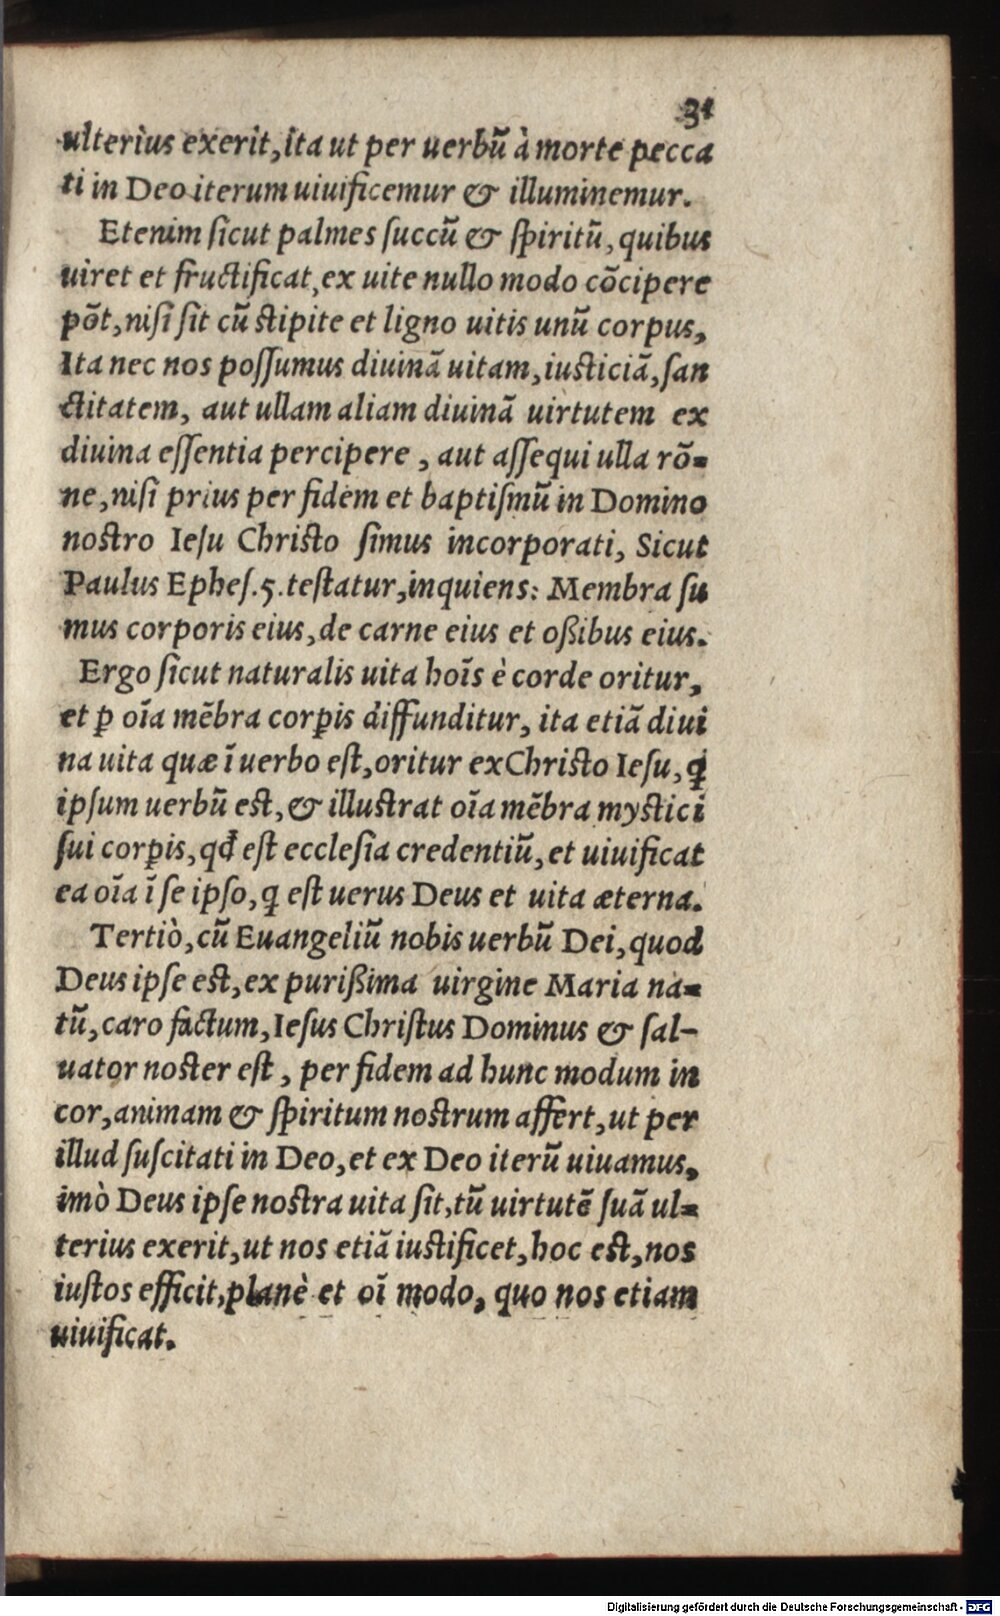 31
ulterius exerit, ita ut per uerbũ à morte pecca
ti in Deo iterum uiuificemur & illuminemur.
Etenim ſicut palmes ſuccũ & ſpiritũ, quibus
uiret et fructificat, ex uite nullo modo cõcipere
põt, niſi ſit cũ ſtipite et ligno uitis unũ corpus,
Ita nec nos poſſumus diuinã uitam, iuſticiã, ſan
ctitatem, aut ullam aliam diuinã uirtutem ex
diuina eſſentia percipere, aut aſſequi ulla rõ=
ne, niſi prius per fidem et baptiſmũ in Domino
noſtro Ieſu Chriſto ſimus incorporati, Sicut
Paulus Epheſ.5. teſtatur, inquiens: Membra ſu
mus corporis eius, de carne eius et oßibus eius.
Ergo ſicut naturalis uita hoĩs è corde oritur,
et ꝑ oĩa mẽbra corꝑis diffunditur, ita etiã diui
na uita quæ ĩ uerbo eſt, oritur ex Chriſto Ieſu, ꝗ
ipſum uerbũ eſt, & illuſtrat oĩa mẽbra myſtici
ſui corꝑis, qđ eſt eccleſia credentiũ, et uiuificat
ea oĩa ĩ ſe ipſo, ꝗ eſt uerus Deus et uita æterna.
Tertiò, cũ Euangeliũ nobis uerbũ Dei, quod
Deus ipſe eſt, ex purißima uirgine Maria na=
tũ, caro factum, Ieſus Chriſtus Dominus & ſal-
uator noſter eſt, per fidem ad hunc modum in
cor, animam & ſpiritum noſtrum affert, ut per
illud ſuſcitati in Deo, et ex Deo iterũ uiuamus,
imò Deus ipſe noſtra uita ſit, tũ uirtutẽ ſuã ul=
terius exerit, ut nos etiã iuſtificet, hoc eſt, nos
iuſtos efficit, planè et oĩ modo, quo nos etiam
uiuificat.
Digitalisierung gefördert durch die Deutsche Forschungsgemeinschaft - DFG